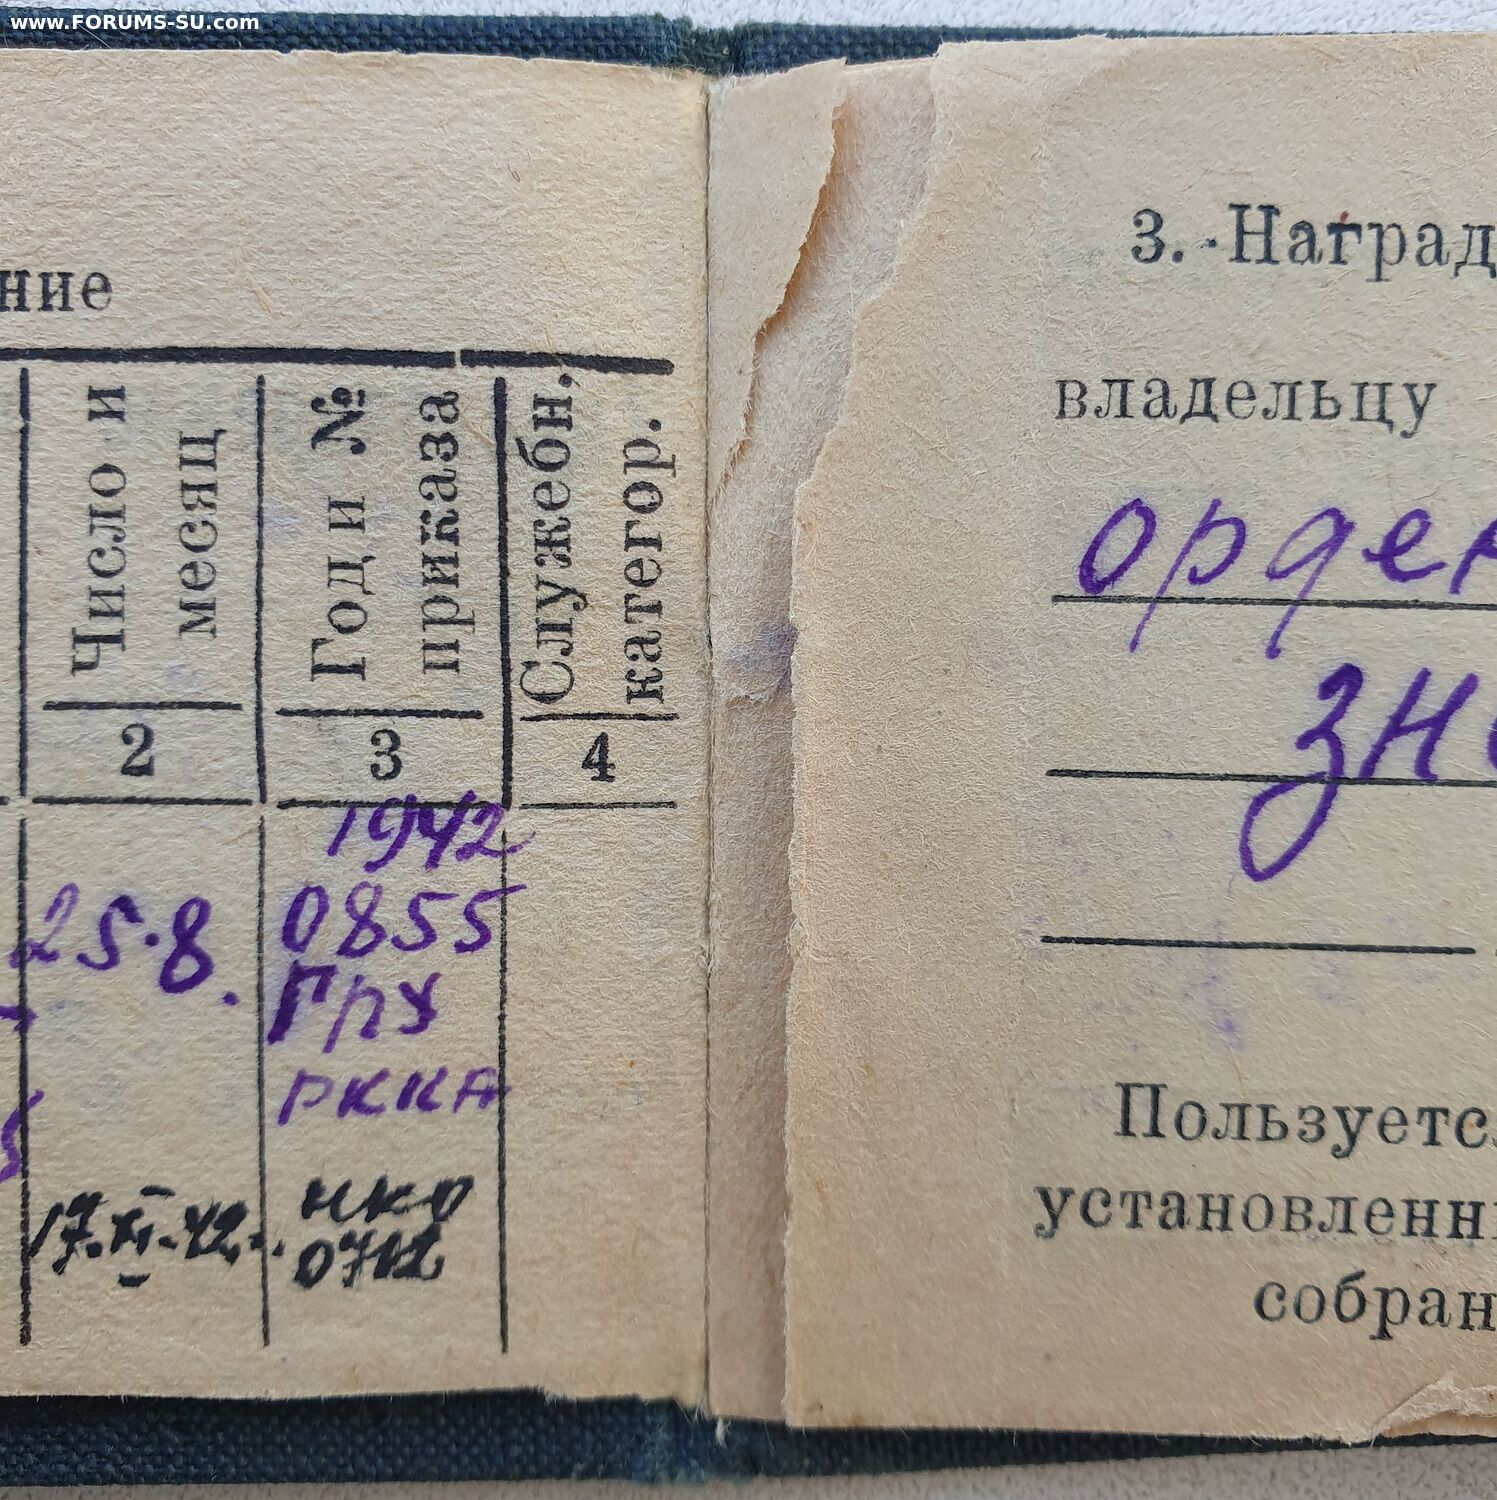 www.FORUMS-SU.com
ние
Число и
месяц
Год и №
приказа
Служебн.
категор.
2
3
4
1942
25.8.
0855
ГРУ
РККА
17.XI.42.
НКО
3. Наград
владельцу
орден
зн
Пользуетс
установленн
собран